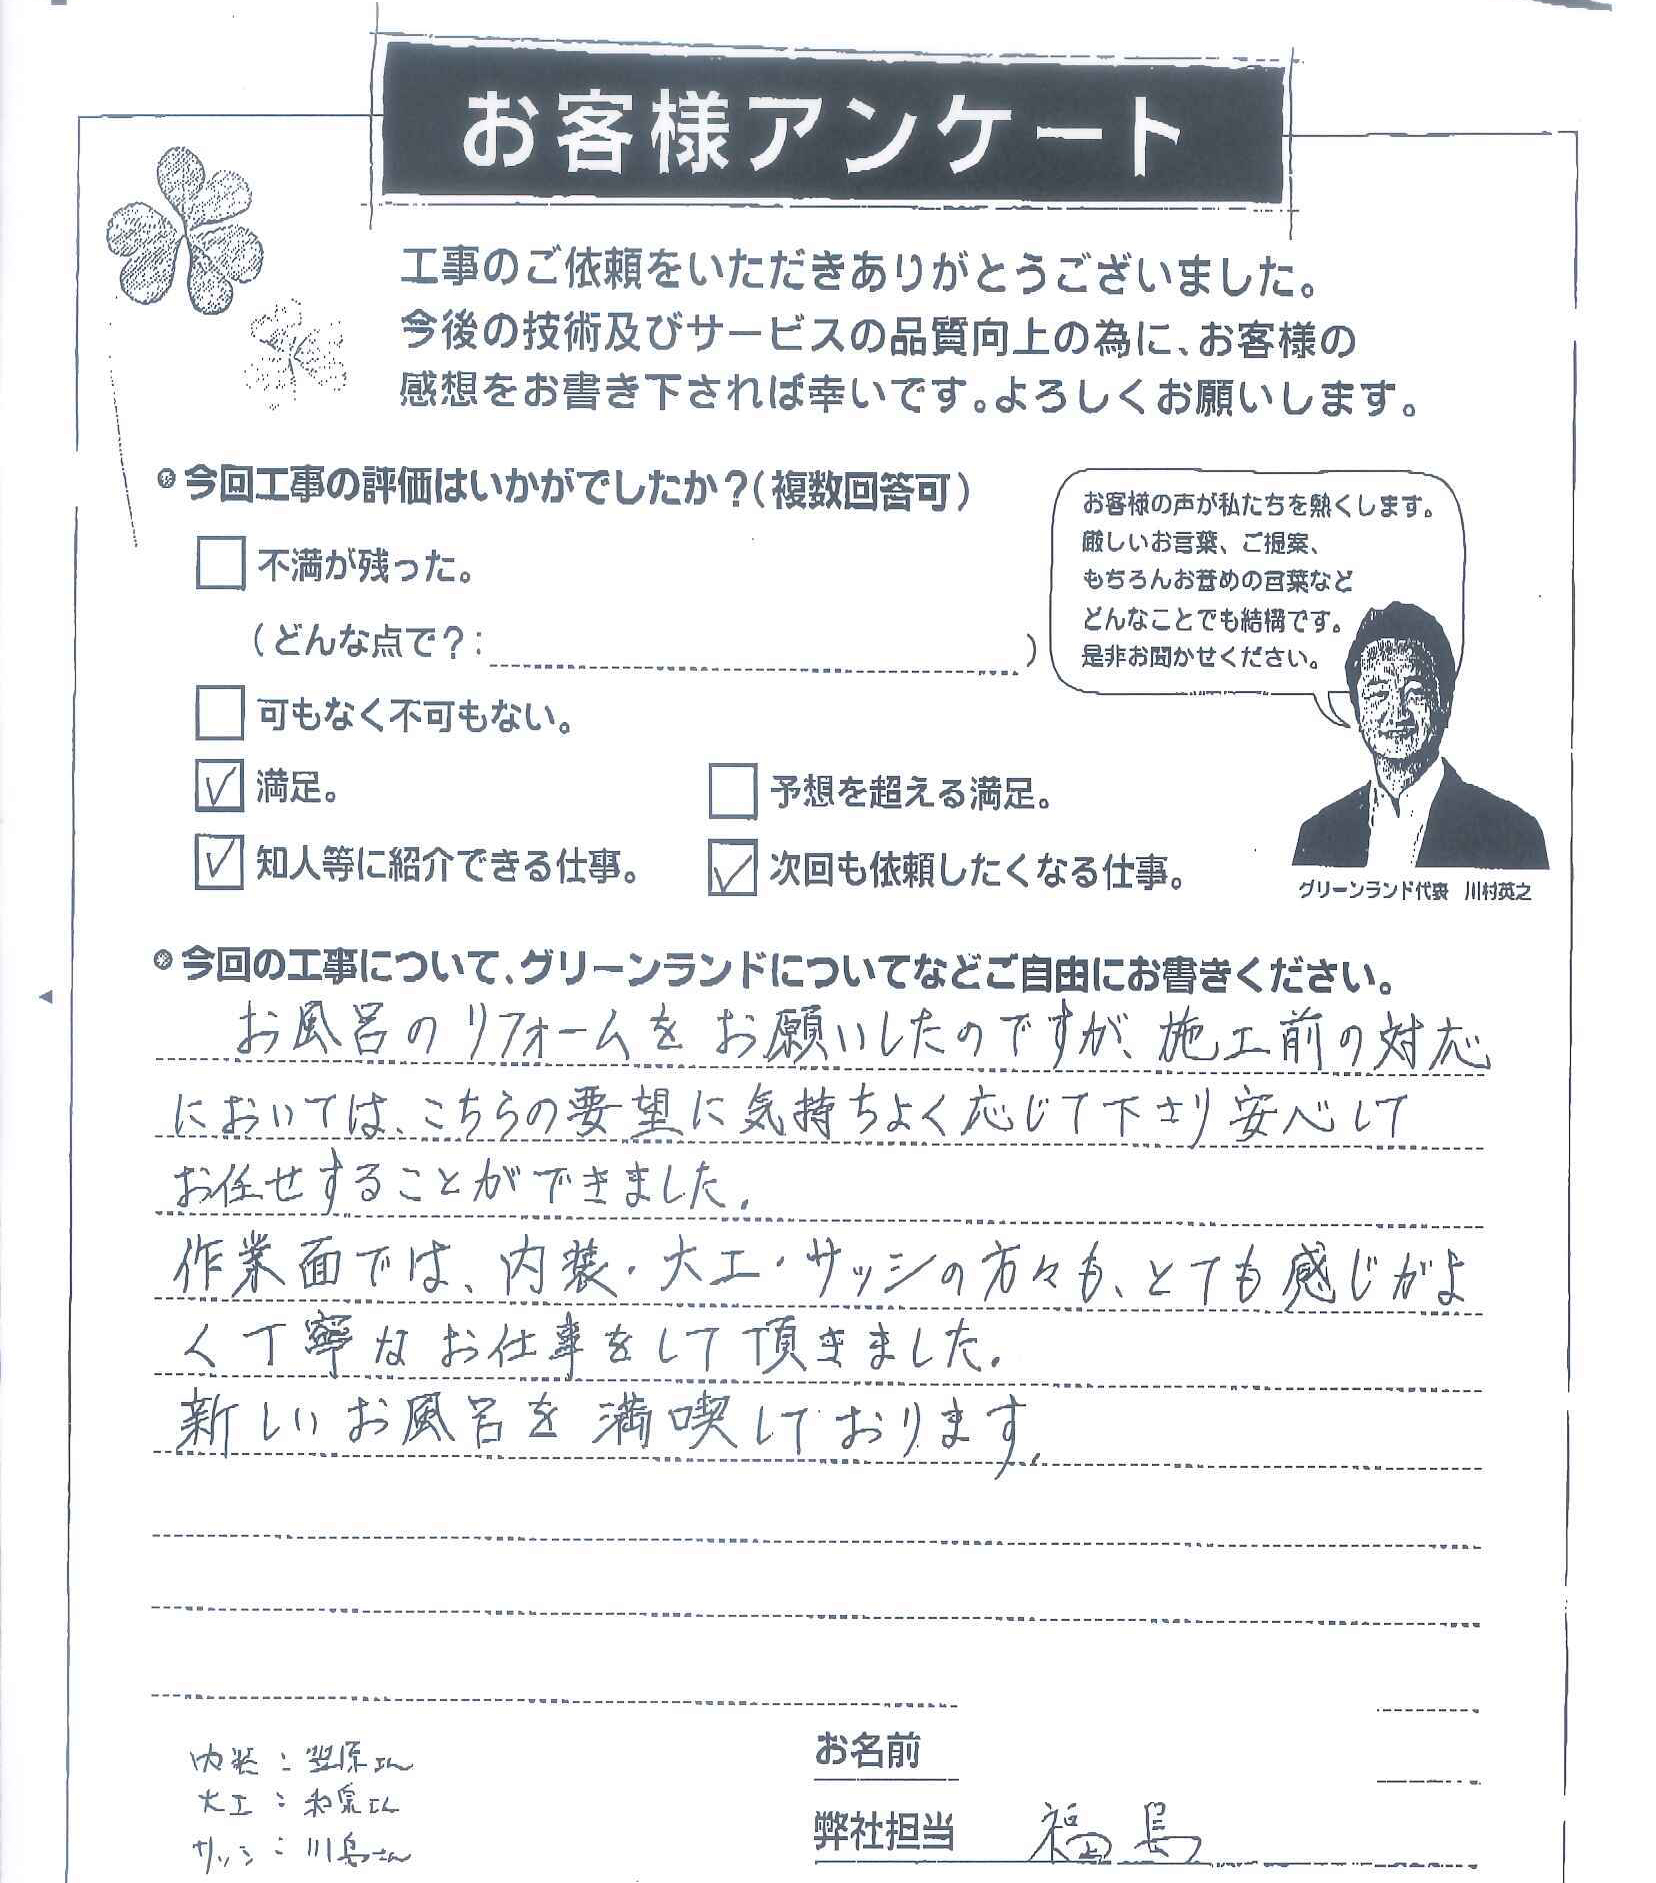 お客様アンケート
工事のご依頼をいただきありがとうございました。
今後の技術及びサービスの品質向上の為に、お客様の
感想をお書き下されば幸いです。よろしくお願いします。
今回工事の評価はいかがでしたか？（複数回答可）
不満が残った。
（どんな点で？： ）
可もなく不可もない。
満足。
予想を超える満足。
知人等に紹介できる仕事。
次回も依頼したくなる仕事。
お客様の声が私たちを熱くします。
厳しいお言葉、ご提案、
もちろんお誉めの言葉など
どんなことでも結構です。
是非お聞かせください。
グリーンランド代表　川村英之
今回の工事について、グリーンランドについてなどご自由にお書きください。
お風呂のリフォームをお願いしたのですが、施工前の対応
においては、こちらの要望に気持ちよく応じて下さり安心して
お任せすることができました。
作業面では、内装・大工・サッシの方々も、とても感じがよ
く丁寧なお仕事をして頂きました。
新しいお風呂を満喫しております。
内装：笠原さん
大工：和泉さん
サッシ：川島さん
お名前
弊社担当 福島